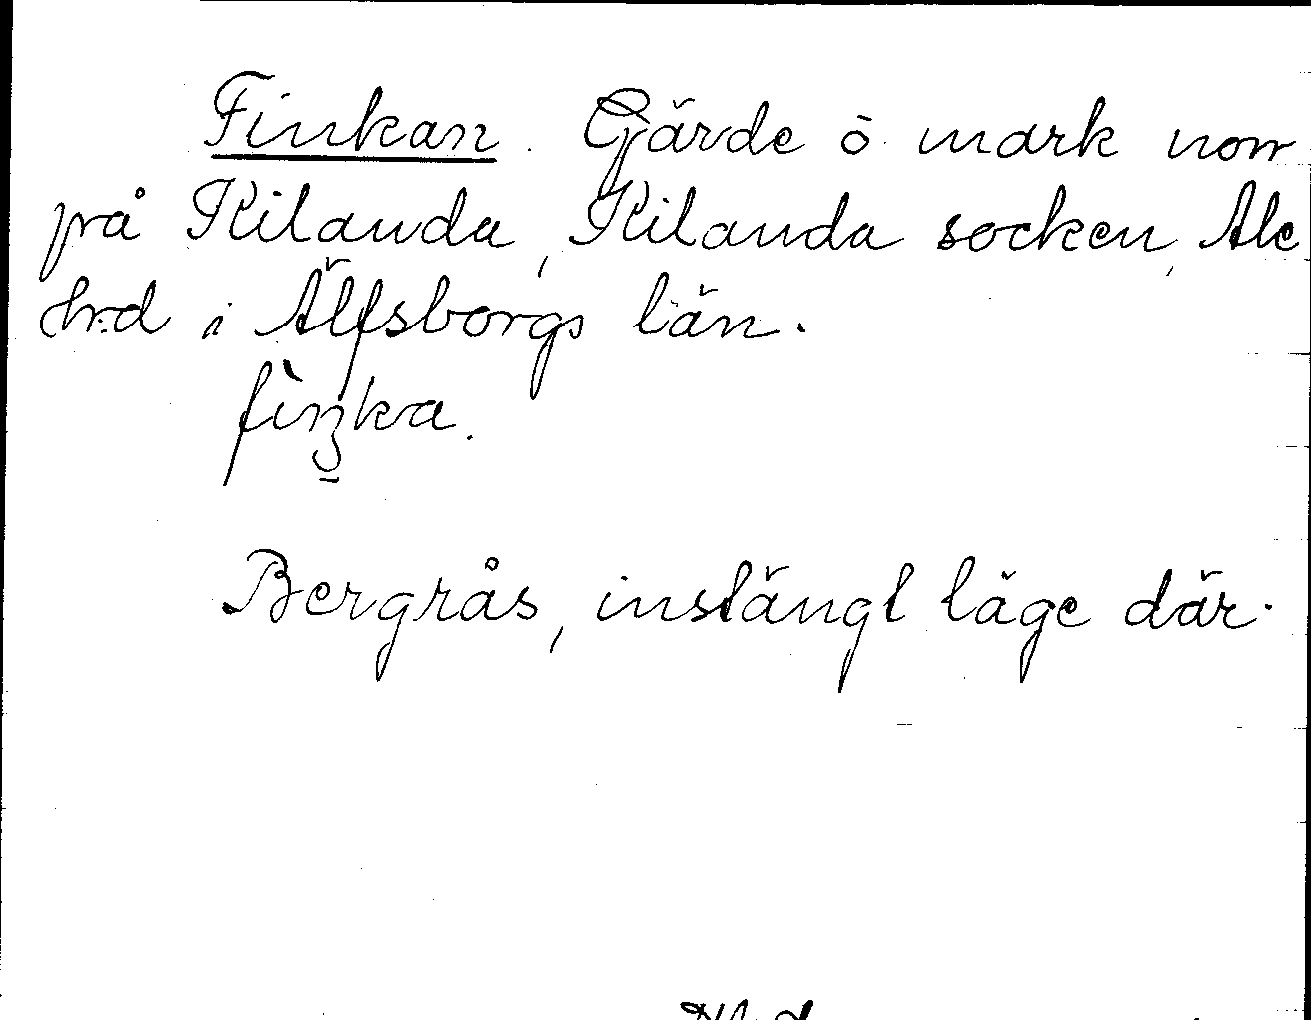 Finkan. Gärde ö. mark norr
på Kilanda, Kilanda socken, Ale
hrd i Älfsborgs län.
fìŋka.
Bergrås, instängt läge där.